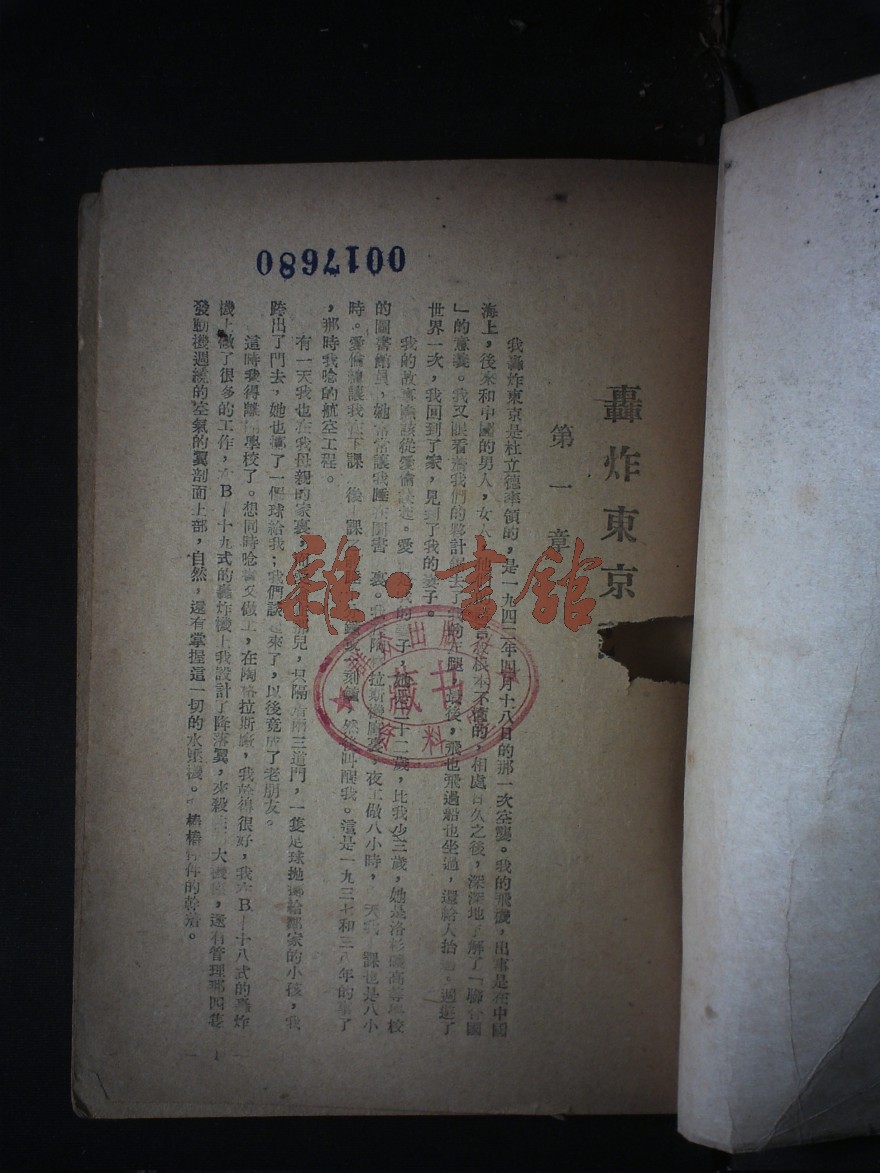 0017680
轟炸東京
第一章
我轟炸東京是杜立德率領的，是一九四二年四月十八日的那一次空襲。我的飛機，出事是在中國
海上，後來和中國的男人，女人，根本不懂的，相處日久之後，深深地了解了「聯合國
」的意義。我又眼看着我們的夥計去了我的左腿，最後，飛也飛過船也坐過，還給人抬過。週遊了
世界一次，我回到了家，見到了我的妻子。
我的故事應該從愛倫談起。愛我的妻子，她二十二歲，比我少三歲，她是洛杉磯高等學校
的圖書館員，她常常讓我睡在圖書裏。我在陶格拉斯機廠裏，夜工做八小時，天我上課也是八小
時。愛倫總讓我在下課後課之一刻鐘，然後叫醒我。這是一九三七和三八年的事了
，那時我唸的航空工程。
有一天我也在我母親的家裏，兒，只隔着兩三道門，一隻足球拋過給鄰家的小孩，我
跨出了門去，她也擲了一個球給我；我們談起來了，以後竟成了老朋友。
這時我得離開學校了。想同時唸書又做工，在陶格拉斯廠，我幹得很好，我在B—十八式的轟炸
機上做了很多的工作，在B—十九式的轟炸機上我設計了降落翼，來殺大機，還有管理那四隻
發動機週繞的空氣的翼剖面上部，自然，還有掌握這一切的水壓機。樁樁件件的幹着。
— 1 —
出版
藏书
資料
雜·書館